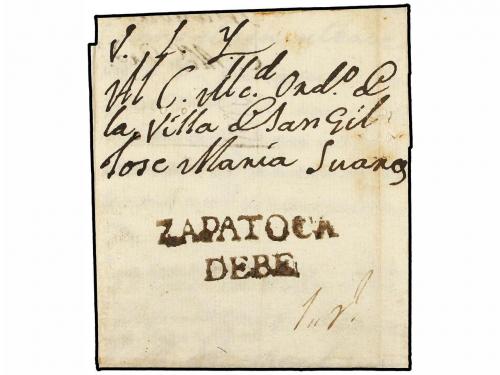 S. I. Y.
Al C. Alc.d Ord.o de
la Villa de San Gil
Jose Maria Suares
ZAPATOCA
DEBE